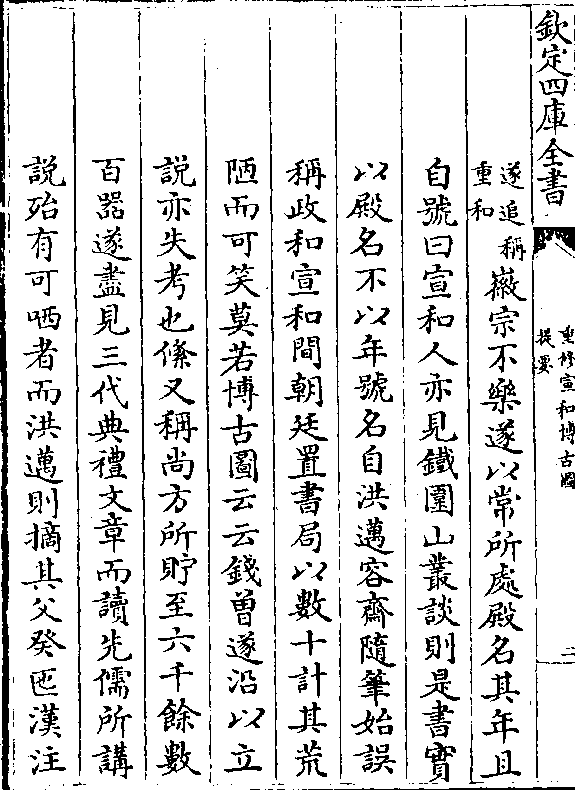 欽定四庫全書
重修宣和博古圖
提要
二
遂追稱
重和
徽宗不樂遂以常所處殿名其年且
自號曰宣和人亦見鐵圍山叢談則是書實
以殿名不以年號名自洪邁容齋隨筆始誤
稱政和宣和間朝廷置書局以數十計其荒
陋而可笑莫若博古圖云云錢曾遂沿以立
說亦失考也絛又稱尚方所貯至六千餘數
百器遂盡見三代典禮文章而讀先儒所講
說殆有可哂者而洪邁則摘其父癸匜漢注